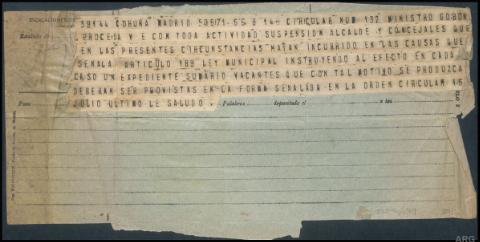 INDICACIONES
59144 CORUÑA MADRID 505/71 5 5 8 140 CIRCULAR NUM 132 MINISTRO GOBON
PROCEDA V E CON TODA ACTIVIDAD SUSPENSION ALCALDE Y CONCEJALES QUE
EN LAS PRESENTES CIRCUNSTANCIAS HAYAN INCURRIDO EN LAS CAUSAS QUE
SEÑALA ARTICULO 189 LEY MUNICIPAL INSTRUYENDO AL EFECTO EN CADA
CASO UN EXPEDIENTE SUMARIO VACANTES QUE CON TAL MOTIVO SE PRODUZCA
DEBERAN SER PROVISTAS EN LA FORMA SEÑALADA EN LA ORDEN CIRCULAR DE
JULIO ULTIMO LE SALUDO
Para
Palabras
depositado el
a las
ARG